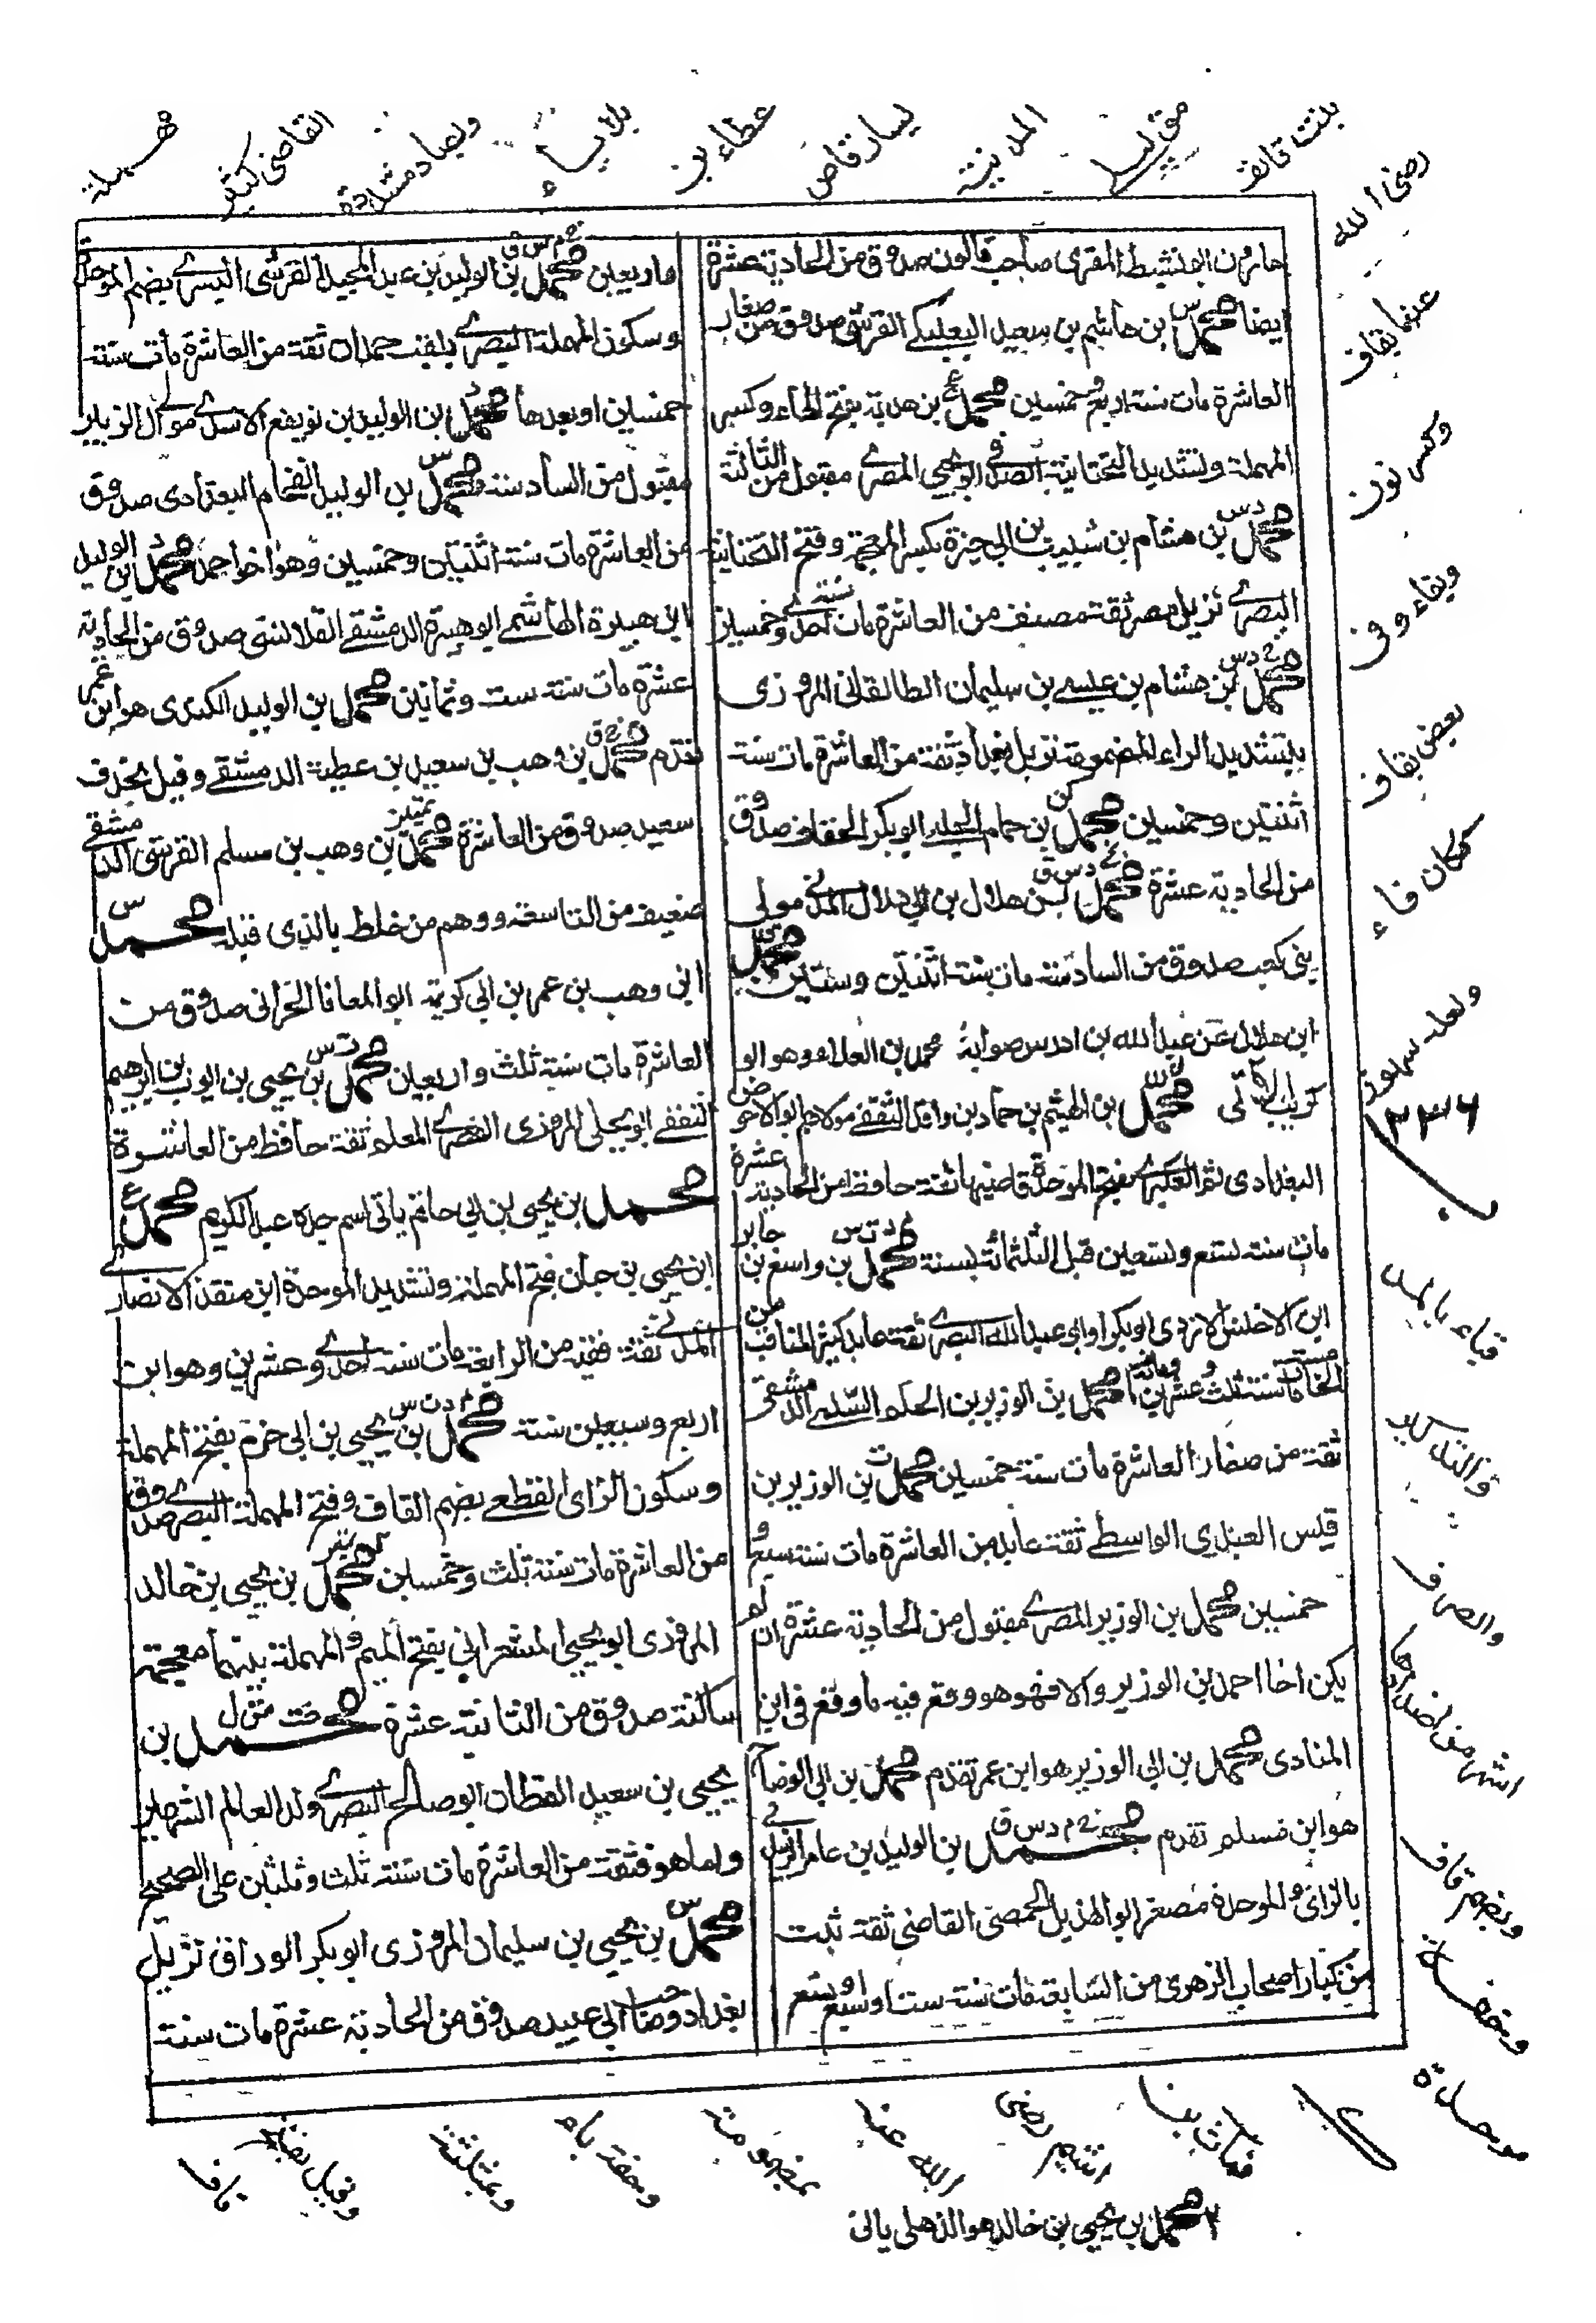 هارون ابو نشيط المقرى صاحب قالون صدوق من الحادية عشرة
ايضا محمد س بن هاشم بن سعيد البعلبكى القرشى صدوق من صغار
العاشرة مات سنة اربع وخمسين محمد ع بن هدية بفتح الهاء وكسر
المهملة وتشديد التحتانية الصدفى ابو يحيى المصرى مقبول من الثالثة
محمد د س بن هشام بن شبيب بن ابى خيرة بكسر المعجمة وفتح التحتانية
البصرى نزيل مصر ثقة مصنف من العاشرة مات سنة احدى وخمسين
محمد خ د س بن هشام بن عيسى بن سليمان الطالقانى المروزى
بتشديد الراء المضمومة نزيل بغداد ثقة من العاشرة مات سنة
اثنتين وخمسين محمد كن بن همام الحلبى ابو بكر الخفاف صدوق
من الحادية عشرة محمد د س ق بن هلال بن ابى هلال المدنى مولى
بنى كعب صدوق من السادسة مات سنة اثنتين وستين محمد
ابن هلال عن عبد الله بن ادريس صوابه محمد بن العلاء وهو ابو
كريب محمد ق بن الهيثم بن حماد بن واقد الثقفى مولاهم ابو الاحوص
البغدادى ثم العكبرى بفتح الموحدة قاضيها ثقة حافظ من الحادية عشرة
مات سنة تسع وتسعين قبل الثلثمائة بسنة محمد م د ت س بن واسع بن جابر
ابن الاخنس الازدى ابو بكر او ابو عبد الله البصرى ثقة عابد كثير المناقب من
الخامسة مات سنة ثلث وعشرين ومائة محمد بن الوزير بن الحكم السلمى الدمشقى
ثقة من صغار العاشرة مات سنة خمسين محمد ت بن الوزير بن
قيس العبدى الواسطى ثقة عابد من العاشرة مات سنة سبع و
خمسين محمد بن الوزير المصرى مقبول من الحادية عشرة ان لم
يكن اخا احمد بن الوزير والا فهو هو ووقع فيه ما وقع فى ابن
المنادى محمد بن ابى الوزير هو ابن عمر تقدم محمد بن ابى الوضاح
هو ابن مسلم تقدم محمد خ م د س ق بن الوليد بن عامر الزبيدى
بالزاى والموحدة مصغر ابو الهذيل الحمصى القاضى ثقة ثبت
من كبار اصحاب الزهرى من السابعة مات سنة ست او سبع او تسع
واربعين محمد خ م س ق بن الوليد بن عبد الحميد القرشى البسرى بضم الموحدة
وسكون المهملة البصرى يلقب حمدان ثقة من العاشرة مات سنة
خمسين او بعدها محمد د بن الوليد بن نويفع الاسدى مولى آل الزبير
مقبول من السادسة محمد س بن الوليد الفحام البغدادى صدوق
من العاشرة مات سنة اثنتين وخمسين وهو اخو احمد محمد د بن الوليد
ابن هبيرة الهاشمى ابو هبيرة الدمشقى القلانسى صدوق من الحادية
عشرة مات سنة ست وثمانين محمد بن الوليد الكندى هو ابن عمر
تقدم محمد خ ق بن وهب بن سعيد بن عطية الدمشقى وقيل بحذف
سعيد صدوق من العاشرة محمد تمييز بن وهب بن مسلم القرشى الدمشقى
ضعيف من التاسعة ووهم من خلط بالذى قبله محمد س
ابن وهب بن عمر بن ابى كريمة ابو المعافا الحرانى صدوق من
العاشرة مات سنة ثلث واربعين محمد ت س بن يحيى بن ايوب بن ابراهيم
الثقفى ابو يحيى المروزى القصرى المعلم ثقة حافظ من العاشرة
محمد بن يحيى بن ابى حاتم ياتى اسم جده عبد الكريم محمد ع
ابن يحيى بن حبان بفتح المهملة وتشديد الموحدة ابن منقذ الانصارى
المدنى ثقة فقيه من الرابعة مات سنة احدى وعشرين وهو ابن
اربع وسبعين سنة محمد م د ت س بن يحيى بن ابى حزم بفتح المهملة
وسكون الزاى القطعى بضم القاف وفتح المهملة البصرى صدوق
من العاشرة مات سنة ثلث وخمسين محمد تمييز بن يحيى بن خالد
المروزى ابو يحيى المشعرانى بفتح الميم والمهملة بينهما معجمة
ساكنة صدوق من الثانية عشرة محمد خت مق ل بن
يحيى بن سعيد القطان ابو صالح البصرى ولد العالم الشهير
واما هو فثقة من العاشرة مات سنة ثلث وثلثين على الصحيح
محمد س بن يحيى بن سليمان المروزى ابو بكر الوراق نزيل
بغداد وصاحب ابى عبيد صدوق من الحادية عشرة مات سنة
هملة
القاضى كثير
وبصاد مشددة
بلا ياء
عطاء بن
يسار قاص
المدينة
بنت قانف
رضى الله
عنها بقاف
وكسر نون
وبفاء وفى
بعض بقاف
مكان فاء
ولعله سهو
٢٣٦
والصرف
اشهر من
وبضم قاف
وبخفة
موحدة
اشيم رضى
الله عنه
وخفة ياء
وبمثلثة
محمد بن يحيى بن خالد هو الذهلى ياتى